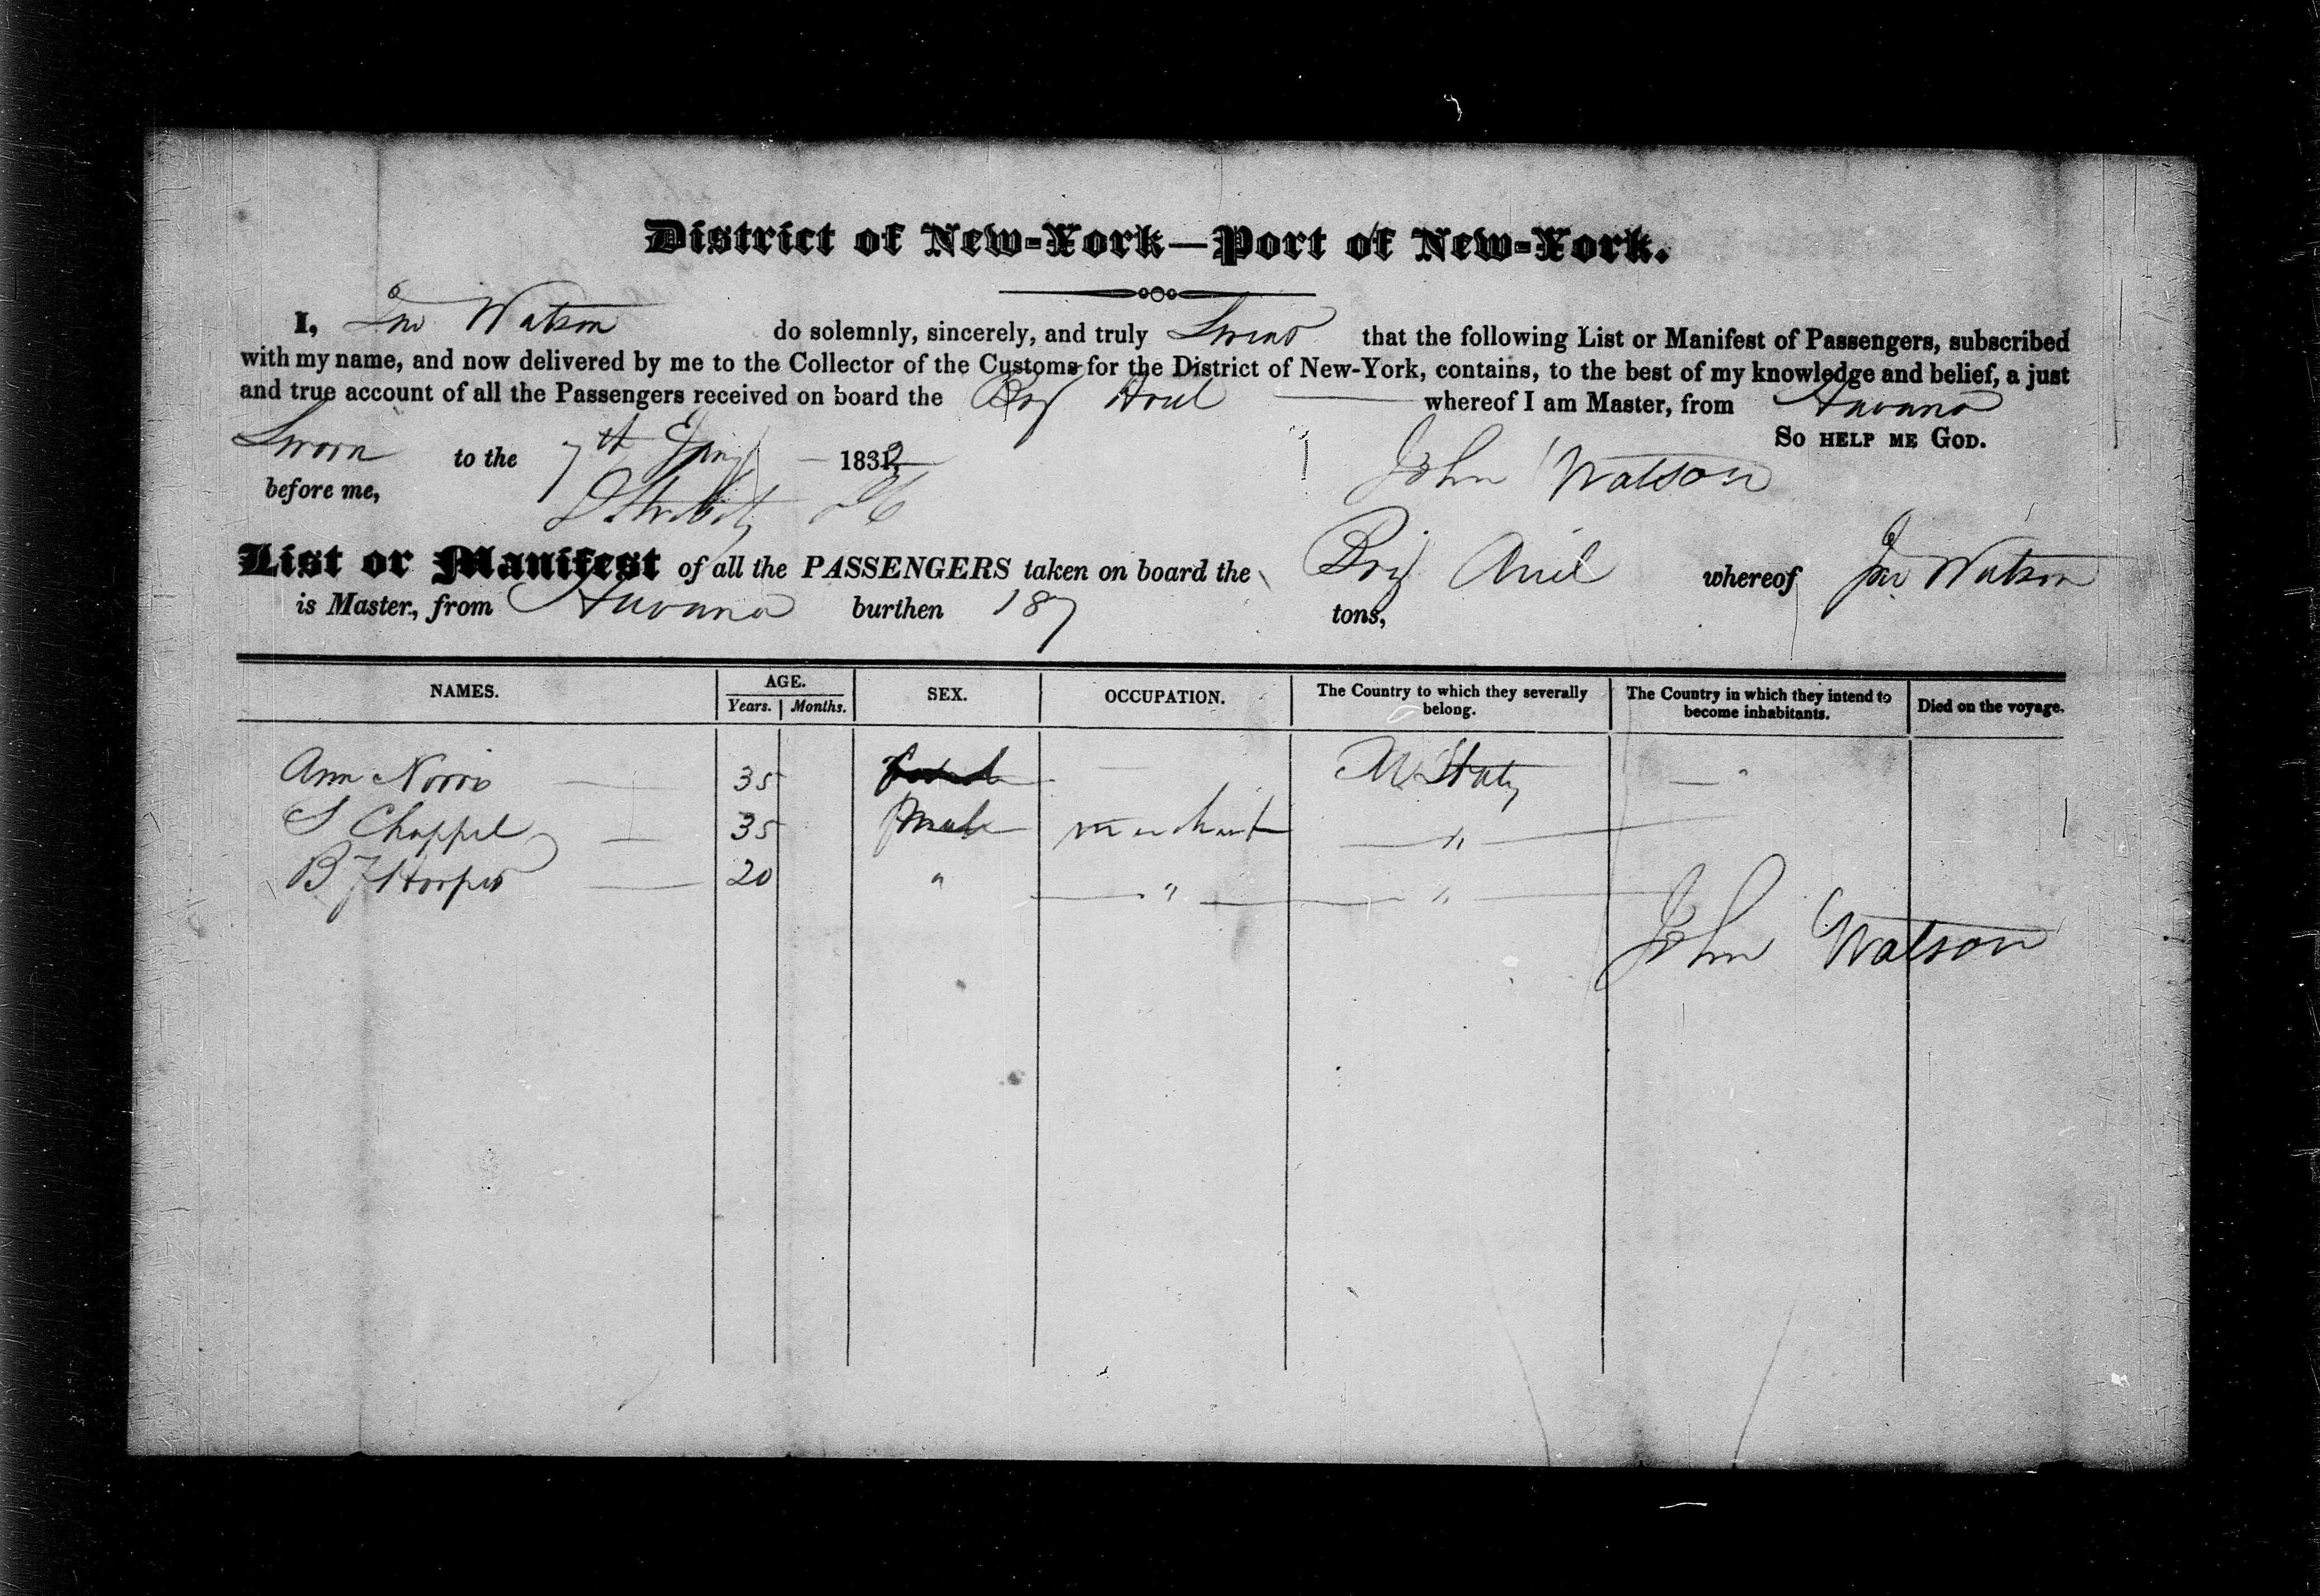 District of New-York—Port of New-York.
I, Jno Watson do solemnly, sincerely, and truly Swear that the following List or Manifest of Passengers, subscribed
with my name, and now delivered by me to the Collector of the Customs for the District of New-York, contains, to the best of my knowledge and belief, a just
and true account of all the Passengers received on board the Brig Ariel whereof I am Master, from Havana
So help me God.
Sworn to the 7th 1832
before me,
John Watson
List or Manifest of all the PASSENGERS taken on board the Brig Ariel whereof Jno Watson
is Master, from Havana burthen 187 tons,
NAMES. AGE. Years. Months. SEX. OCCUPATION. The Country to which they severally belong. The Country in which they intend to become inhabitants. Died on the voyage.
Ann Norris — 35 — U States — "
S Chappel — 35 male merchant — " —
B F Hooper — 20 " — " — " —
John Watson